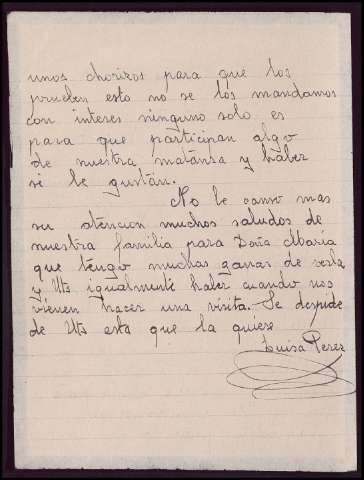 unos chorizos para que los
prueben esto no se los mandamos
con interes ninguno solo es
para que participan algo
de nuestra matansa y haber
si le gustan.
No le canso mas
su atencion muchos saludos de
nuestra familia para Doña Maria
que tengo muchas ganas de verla
y Uts igualmente haber cuando nos
vienen hacer una visita. Se despide
de Uts esta que la quiere
Luisa Perez